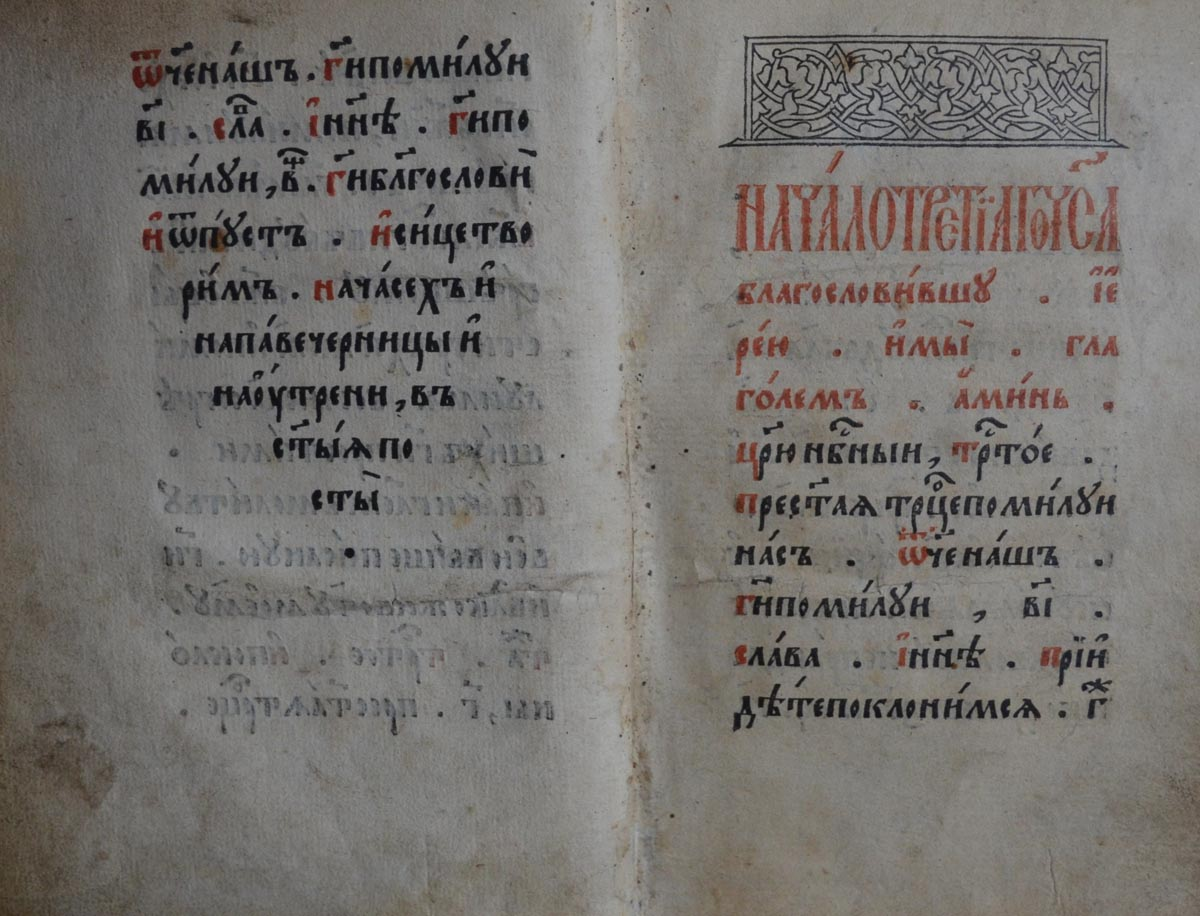 Ѿч҃ена́шъ . Гⷭ҇ипоми́лꙋи
в҃і . слаⷡ҇ . і҆нн҃ѣ . Гⷭ҇ипо
ми́лꙋи, в҃ . Гⷭ҇ибл҃гослови
и҆ѿпꙋ́стъ . и҆си́цетво
ри́мъ . нача́сехъ и҆
напа́вечерницы и҆
наᲂу҆́трени, въ
ст҃ы́ѧ по
сты̀
•
Нача́лотре́тїѧгочаⷭ҇са̀
благослови́вшꙋ . і҆е
ре́ю . и҆мы̀ . гла
го́лемъ . а҆ми́нь .
Цр҃юнб҃ныи, трⷭ҇то́е .
Прест҃аѧ трⷪ҇цепоми́лꙋи
на́съ . Ѿч҃ена́шъ .
Гⷭ҇ипоми́лꙋи , в҃і .
сла́ва . і҆нн҃ѣ . прїи
дѣ́тепоклони́мсѧ . г҃